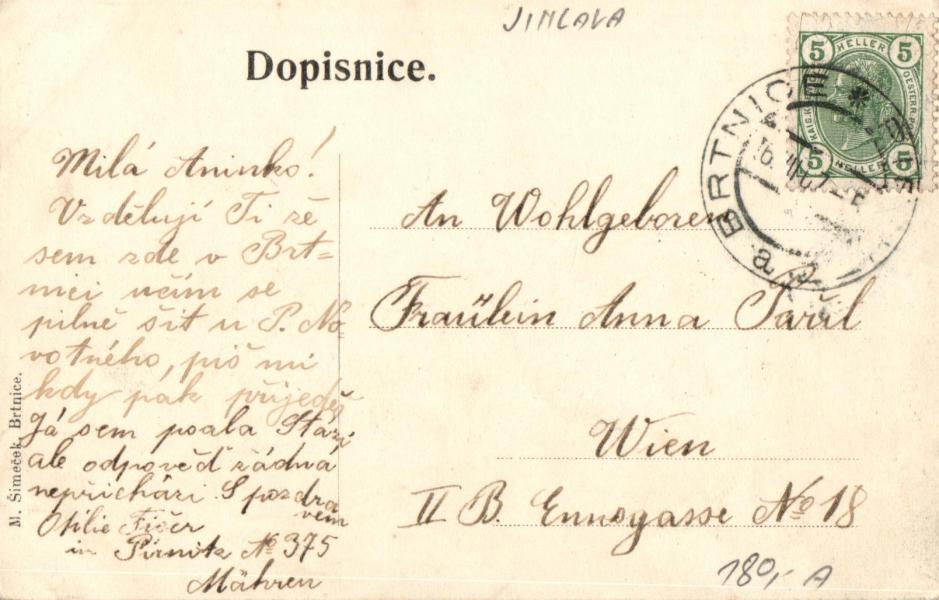 JIHLAVA
Dopisnice.
5 HELLER 5
KAIS. K. OESTERR. P.
5 HELLER 5
BRTNICE *
16. VII. 07
a
Milá Aninko!
Vzdělují Ti že
sem zde v Brt=
nici učím se
pilně šít u P. No
votného, piš mi
kdy pak přijedeš
Já sem psala Stázi
ale odpověď řádná
nepřichází S pozdra
vem
Otilie Fišer
in Pirnitz No 375
Mähren
M. Šimeček, Brtnice.
An Wohlgeboren
Fraülein Anna
Wien
II B. Ennsgasse No 18
180,- A